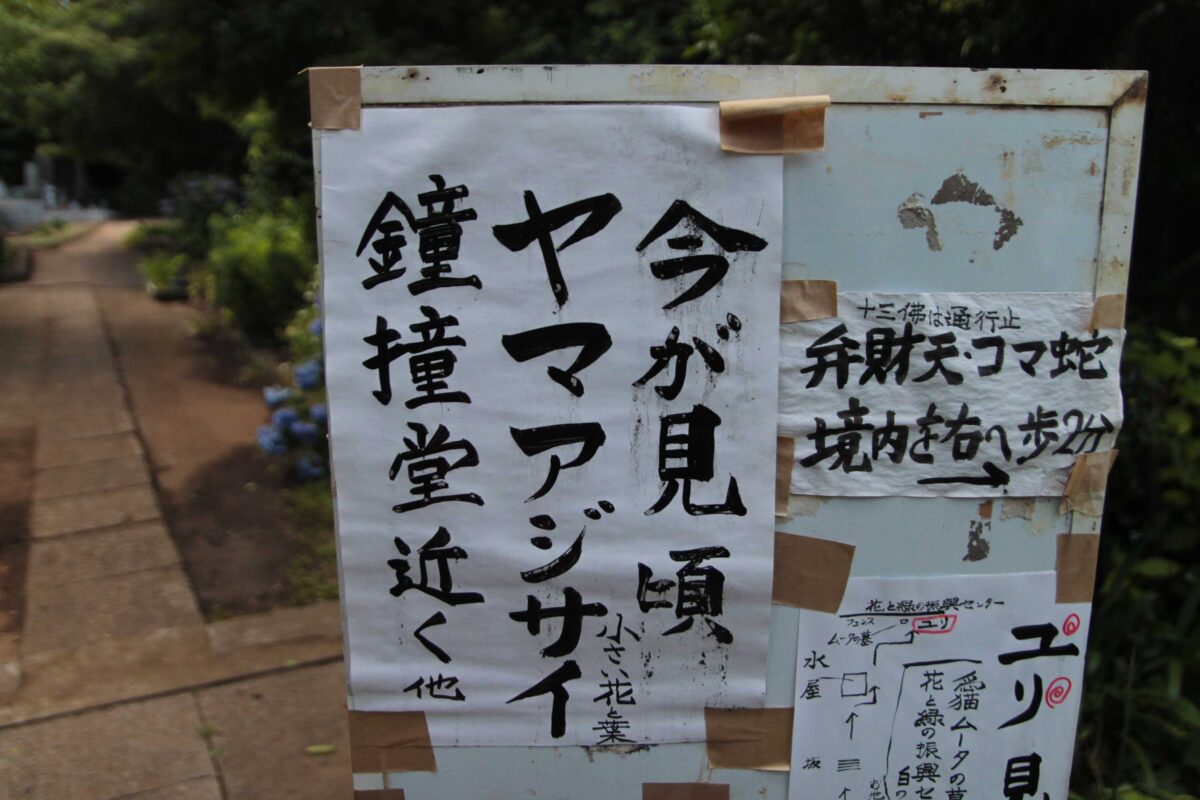 今が見頃
ヤマアジサイ
小さい花と葉
鐘撞堂近く他
十三佛は通行止
弁財天・コマ蛇
境内を右へ歩2分
花と緑の振興センター
フェンス
ユリ
ムータの墓
水屋
坂
ユリ見
愛猫ムータの墓
花と緑の振興セ